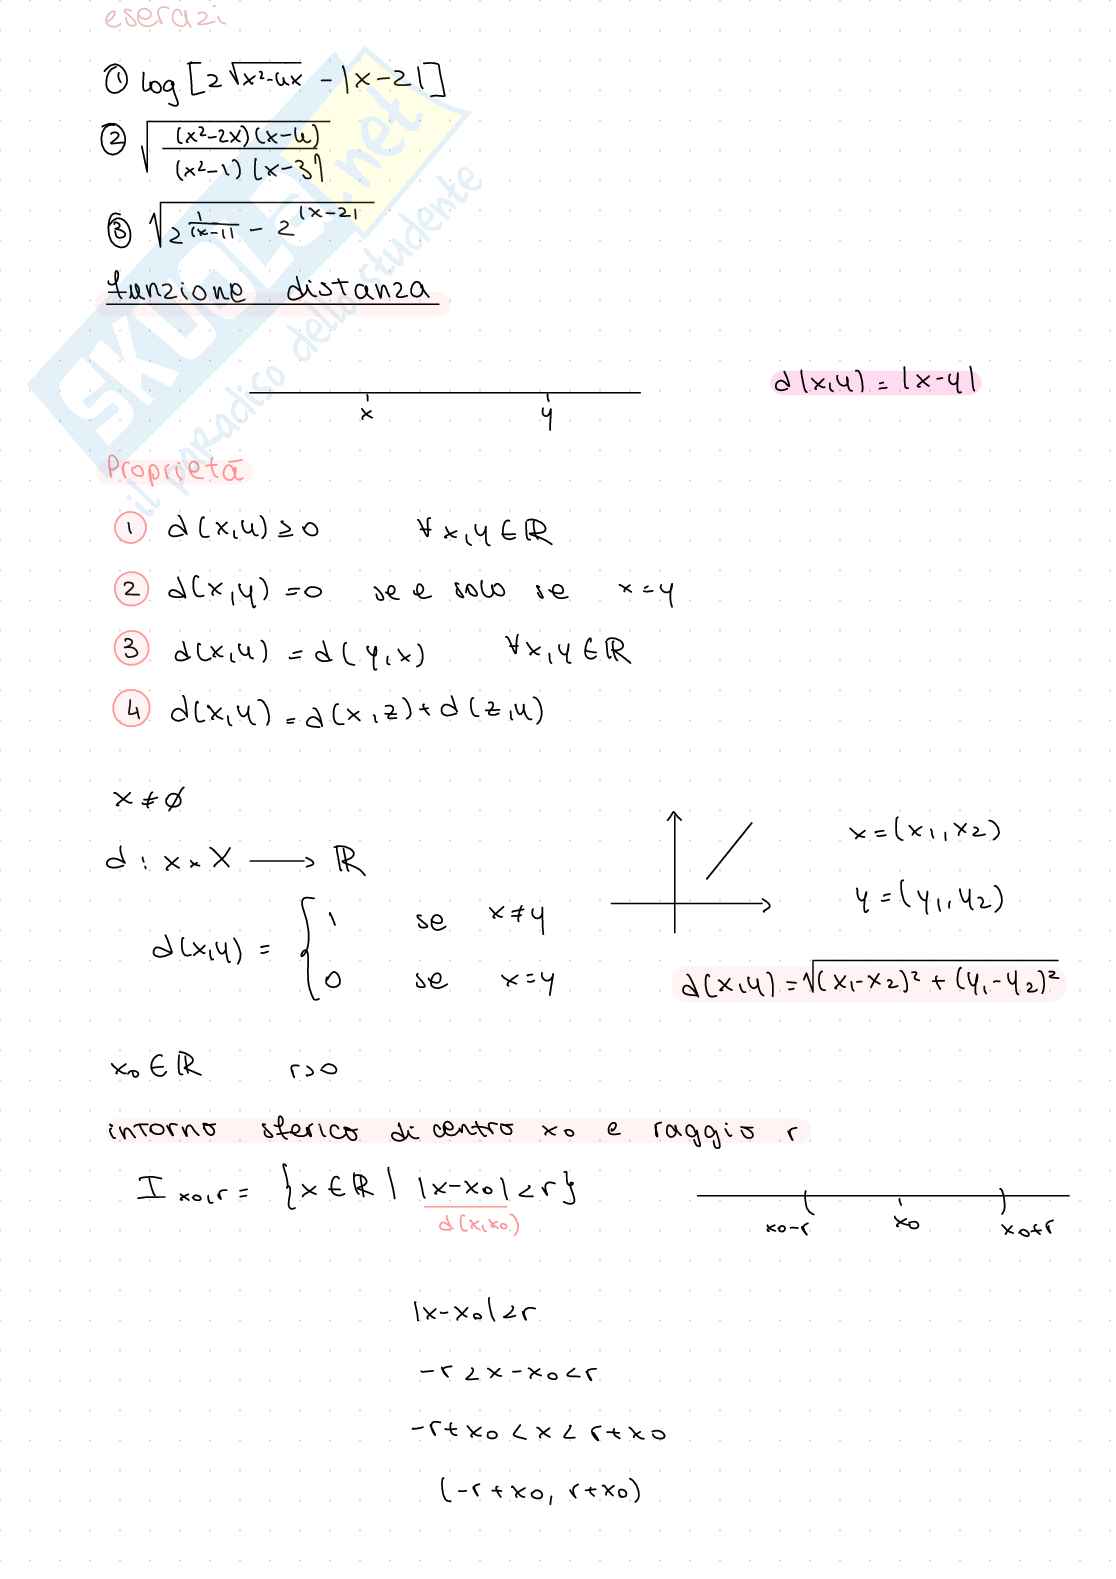 eserazi
① log [2 √x²-4x - |x-2|]
② √(x²-2x)(x-4)
(x²-1)(x-3)
③ √2^1/|x-1| - 2^|x-2|
funzione distanza
x y
d(x,y) = |x-y|
Proprietà
① d(x,y) ≥ 0 ∀ x,y ∈ ℝ
② d(x,y) = 0 se e solo se x = y
③ d(x,y) = d(y,x) ∀ x,y ∈ ℝ
④ d(x,y) = d(x,z) + d(z,y)
x ≠ ∅
x = (x₁, x₂)
d : x × X ⟶ ℝ
y = (y₁, y₂)
d(x,y) = { 1 se x ≠ y
0 se x = y
d(x,y) = √(x₁-x₂)² + (y₁-y₂)²
x₀ ∈ ℝ r>0
intorno sferico di centro x₀ e raggio r
I x₀,r = {x ∈ ℝ | |x-x₀| < r}
d(x,x₀)
x₀-r x₀ x₀+r
|x-x₀| < r
-r < x-x₀ < r
-r+x₀ < x < r+x₀
(-r+x₀, r+x₀)
SKUOLA.net
il paradiso dello studente